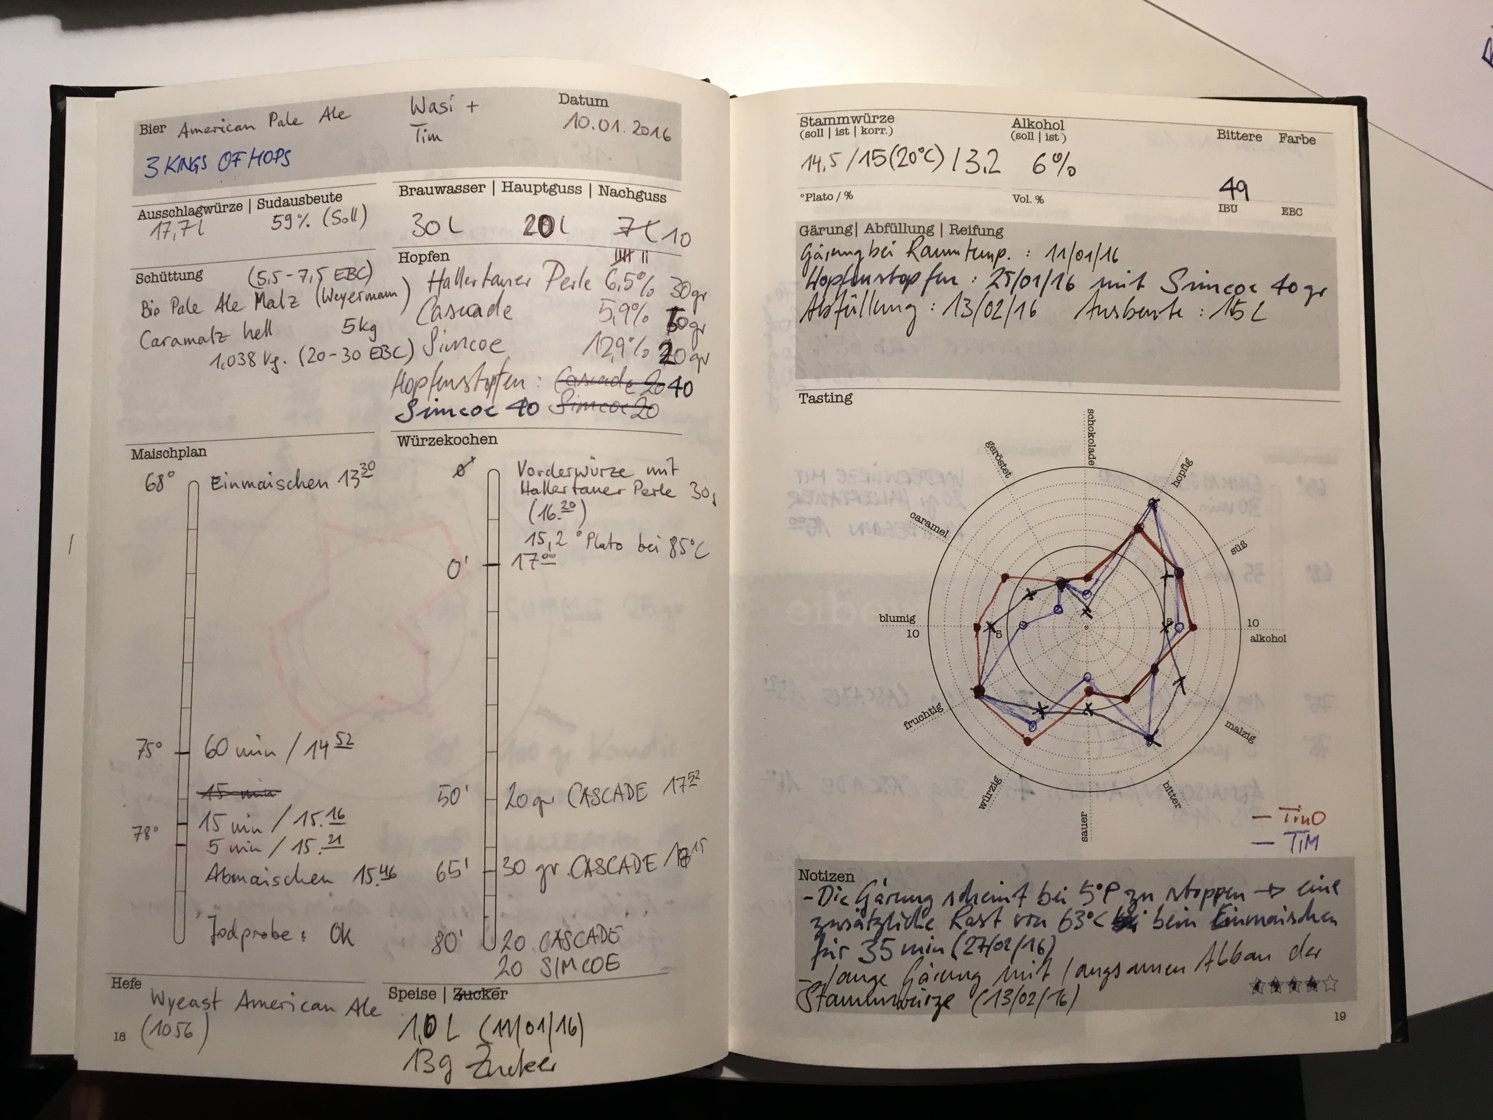 Bier American Pale Ale
3 KINGS OF HOPS
Wasi +
Tim
Datum
10.01.2016
Ausschlagwürze | Sudausbeute
17,7 l 59% (Soll)
Brauwasser | Hauptguss | Nachguss
30 L 20 L 10
Schüttung (5,5-7,5 EBC)
Bio Pale Ale Malz (Weyermann)
5 kg
Caramalz hell
1,038 kg. (20-30 EBC)
Hopfen
Hallertauer Perle 6,5% 30gr
Cascade 5,9% gr
Simcoe 12,9% 20gr
Hopfenstopfen: Cascade 20 40
Simcoe 40 Simcoe 20
Maischplan
68° Einmaischen 13 30
75° 60 min / 14 52
15 min
15 min / 15.16
78° 5 min / 15.21
Abmaischen 15.46
Jodprobe: Ok
Würzekochen
Vorderwürze mit
Hallertauer Perle 30g
(16.20)
15,2 °Plato bei 85°C
0' 17 00
50' 20gr CASCADE 17 52
65' 30 gr. CASCADE
80' 20 CASCADE
20 SIMCOE
Hefe
Wyeast American Ale
(1056)
18
Speise | Zucker
1,0 L (11/01/16)
13g Zucker
Stammwürze
(soll | ist | korr.)
14,5 / 15 (20°C) / 3,2
°Plato / %
Alkohol
(soll | ist )
6%
Vol. %
Bittere
49
IBU
Farbe
EBC
Gärung | Abfüllung | Reifung
Gärung bei Raumtemp. : 11/01/16
Hopfenstopfen : 25/01/16 mit Simcoe 40 gr
Abfüllung : 13/02/16 Ausbeute : 15 L
Tasting
schokolade
hopfig
süß
10
alkohol
malzig
bitter
sauer
würzig
fruchtig
blumig
10
caramel
geröstet
5
5
— TinO
— TIM
Notizen
- Die Gärung scheint bei 5°P zu stoppen → eine
zusätzliche Rast von 63°C beim Einmaischen
für 35 min (27/01/16)
- lange Gärung mit langsamen Abbau der
Stammwürze (13/02/16)
19